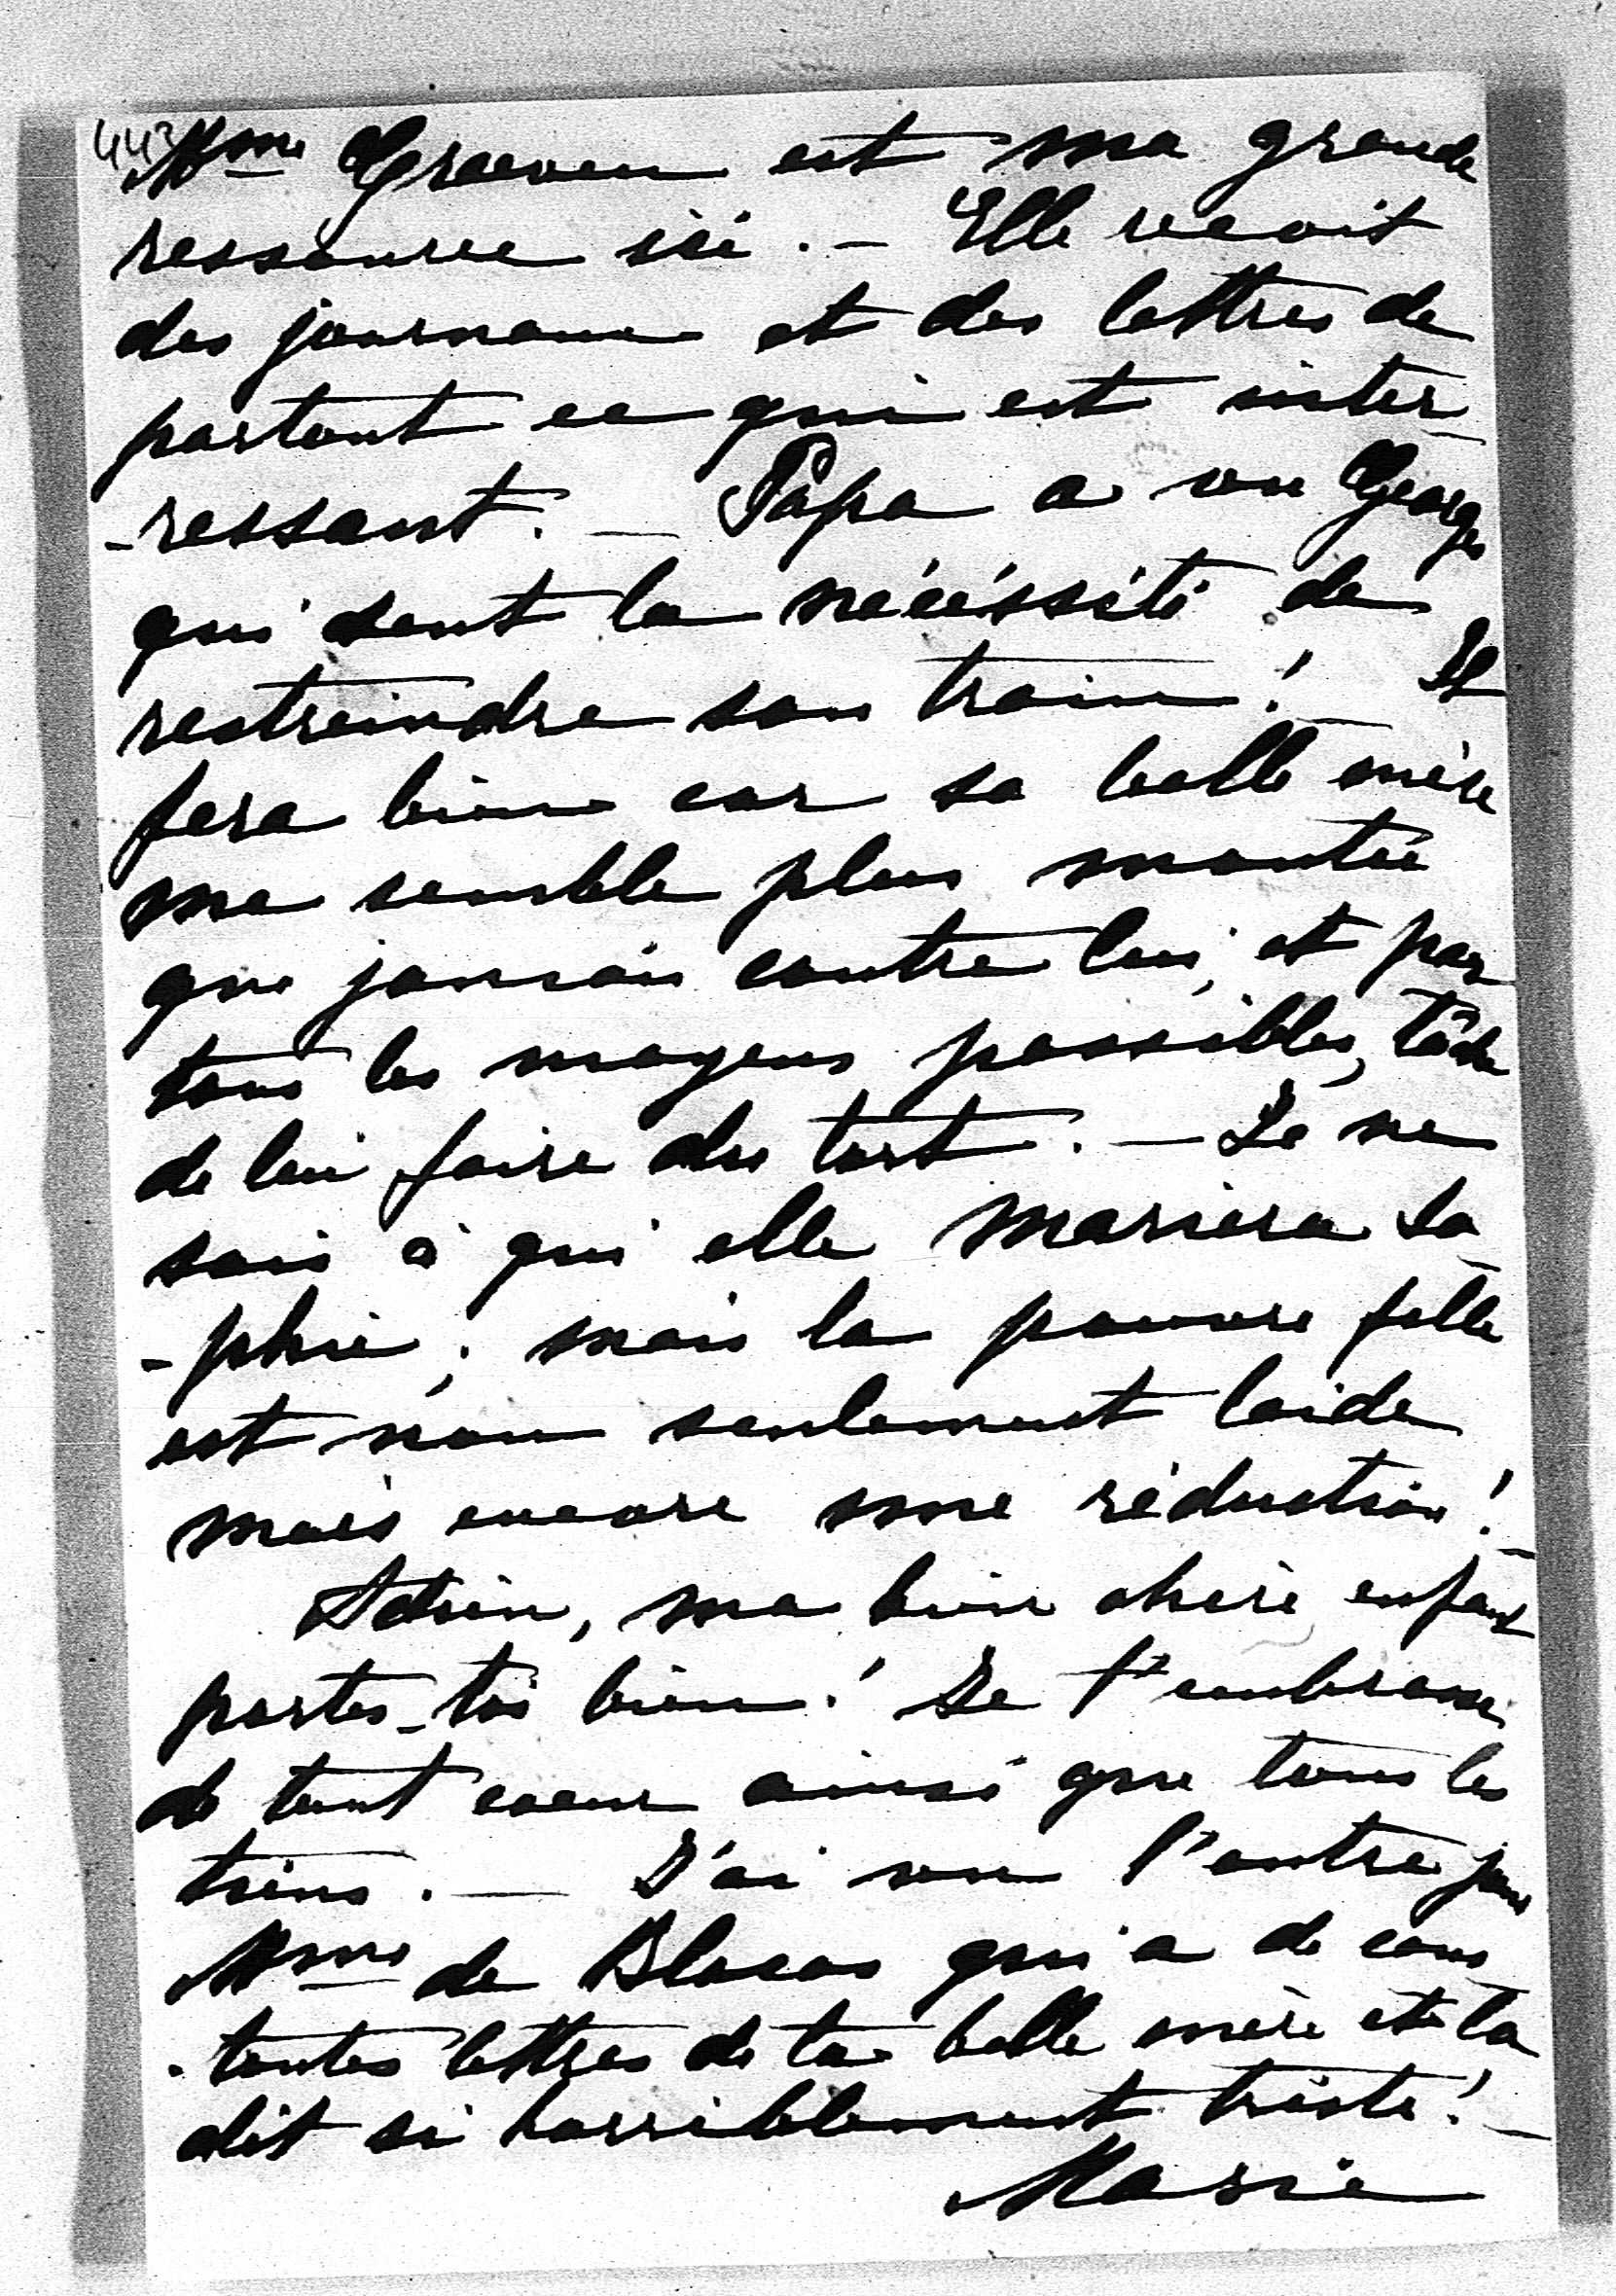 443
Mme Craeven est ma grande
ressource ici. — Elle reçoit
des journaux et des lettres de
partout ce qui est inter
-ressant. — Papa a vu Georges
qui sent la nécéssité de
restreindre son train! — Il
fera bien car sa belle mère
me semble plus montée
que jamais contre lui, et par
tous les moyens possibles, tâche
de lui faire du tort. — Je ne
sais à qui elle mariera So
-phie; mais la pauvre fille
est non seulement laide
mais encore une réduction! —
Adieu, ma bien chère enfant
portes-toi bien! Je t'embrasse
de tout coeur ainsi que tous les
tiens. — J'ai vu l'autre jour
Mme de Blacas qui a de cons
-tantes lettres de ta belle mère et la
dit si horriblement triste! —
Marie